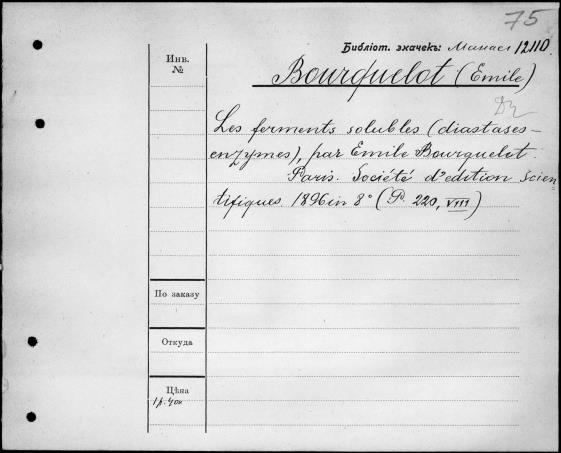 75
Библіот. значекъ: Манасл 12110.
Инв.
№
Bourquelot (Emile)
Les ferments solubles (diastases-
enzymes), par Emile Bourquelot.
Paris. Société d'edition Scien=
tifiques. 1896 in 8° (P. 220, VIII)
По заказу
Откуда
Цѣна
1р.40к